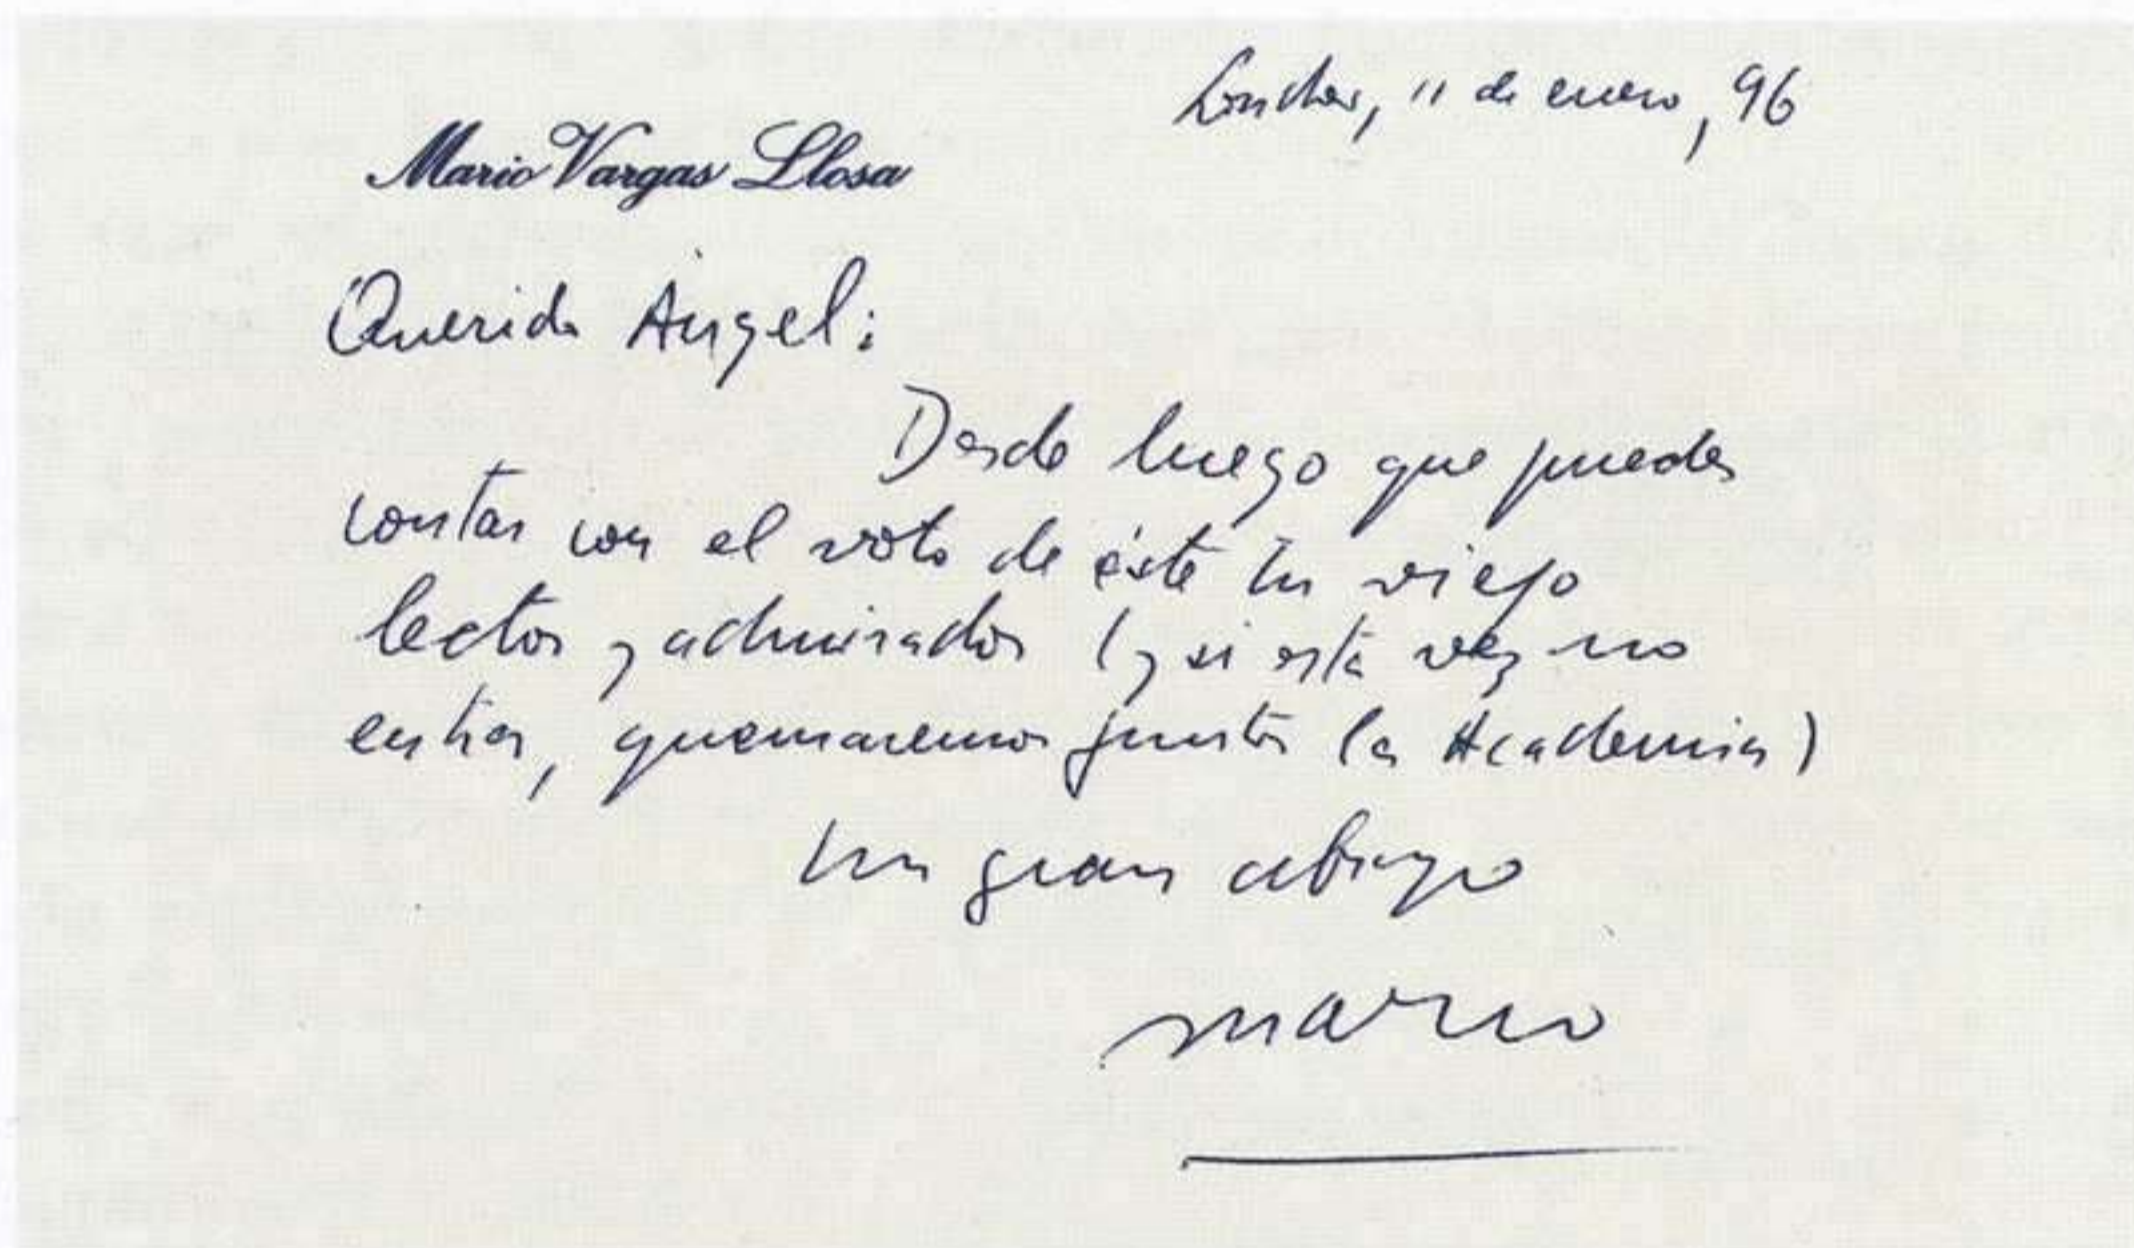 Londres, 11 de enero, 96
Mario Vargas Llosa
Querido Ángel:
Desde luego que puedes
contar con el voto de éste tu viejo
lector y admirador (y si esta vez no
entras, quemaremos juntos la Academia)
Un gran abrazo
Mario